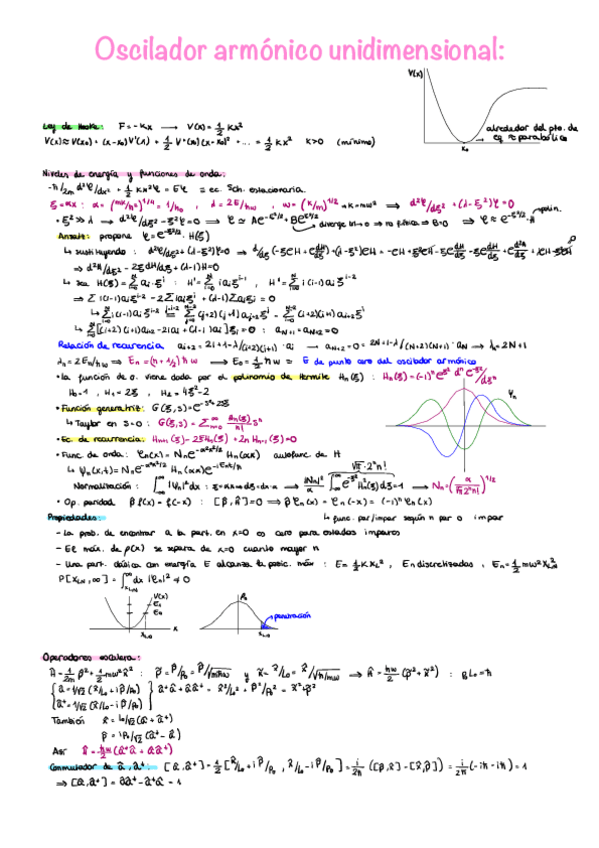 Oscilador armónico unidimensional:
V(x)
Ley de Hooke: F = -kx → V(x) = 1/2 kx²
alrededor del pto. de
eq ≈ parabólico
x₀
V(x) ≈ V(x₀) + (x-x₀)V'(x) + 1/2 V''(x₀)(x-x₀)² + ... = 1/2 kx² k>0 (mínimo)
Niveles de energía y funciones de onda:
-ħ/2m d²φ/dx² + 1/2 kx²φ = Eφ = ec. Sch. estacionaria.
ξ = αx : α = (mk/ħ²)^1/4 = 1/ħ₀ , λ = 2E/ħw , w = (k/m)^1/2 → k = mw² ⇒ d²φ/dξ² + (λ-ξ²)φ = 0
• ξ² >> λ → d²φ/dξ² - ξ²φ = 0 ⇒ φ ≃ Ae^-ξ²/2 + Be^ξ²/2 diverge ⇒ no física ⇒ B=0 ⇒ φ ≈ e^-ξ²/2 · H polin.
Ansatz: propone φ = e^-ξ²/2 · H(ξ)
↳ sustituyendo : d²φ/dξ² + (λ-ξ²)φ = 0
⇒ d²H/dξ² - 2ξ dH/dξ + (λ-1)H = 0
↳ sea H(ξ) = Σ aᵢ ξⁱ : H' = Σ i aᵢ ξ^i-1 , H'' = Σ i(i-1) aᵢ ξ^i-2
⇒ Σ i(i-1)aᵢξ^i-2 - 2Σ i aᵢξⁱ + (λ-1)Σ aᵢξⁱ = 0
↳ Σ i(i-1)aᵢξ^i-2 = Σ (j+2)(j+1)a_j+2 ξ^j = Σ (i+2)(i+1)a_i+2 ξⁱ
↳ Σ [(i+2)(i+1)a_i+2 - 2i aᵢ + (λ-1)aᵢ]ξᵢ = 0 : a_N+1 = a_N+2 = 0
Relación de recurencia a_i+2 = 2i+1-λ/(i+2)(i+1) · aᵢ → a_N+2 = 0 = 2N+1-λ/(N+2)(N+1) · a_N ⇒ λ = 2N+1
λₙ = 2Eₙ/ħw ⇒ Eₙ = (n + 1/2)ħw ⇒ E₀ = 1/2 ħw = E de punto cero del oscilador armónico
• La función de o. viene dada por el polinomio de Hermite Hₙ(ξ) : Hₙ(ξ) = (-1)ⁿ e^ξ² dⁿ e^-ξ²/dξⁿ
H₀ = 1 , H₁ = 2ξ , H₂ = 4ξ² - 2
Ψₙ
• Función generatriz: G(ξ,s) = e^-s²+2ξs
↳ Taylor en s=0 : G(ξ,s) = Σ Hₙ(ξ)/n! sⁿ
• Ec de recurrencia: Hₙ₊₁(ξ) - 2ξHₙ(ξ) + 2n Hₙ₋₁(ξ) = 0
• Func de onda: φₙ(x) = Nₙ e^-α²x²/2 Hₙ(αx) autofunc de H
↳ ψₙ(x,t) = Nₙ e^-α²x²/2 Hₙ(αx) e^-iEₙt/ħ √π · 2ⁿ n!
Normalización : ∫ |ψₙ|² dx : ξ = αx ⇒ dξ = dx·α → |Nₙ|²/α ∫ e^-ξ² Hₙ²(ξ) dξ = 1 → Nₙ = (α/√π 2ⁿ n!)^1/2
• Op. paridad β̂ f(x) = f(-x) : [β̂, Ĥ] = 0 ⇒ β̂ φₙ(x) = φₙ(-x) = (-1)ⁿ φₙ(x)
↳ func. par/impar según n par o impar
Propiedades:
- La prob. de encontrar a la part. en x=0 es cero para estados impares
- El máx. de ρ(x) se separa de x=0 cuanto mayor n
- Una part. clásica con energía E alcanza la posic. máx : E = 1/2 k x²_L , E n discretizadas , Eₙ = 1/2 mw² x²_L,n
P[x_L,n, ∞] = ∫ dx |φₙ|² ≠ 0
V(x)
x
x_L,0
ρ₀
penetración
x_L,0
Operadores escalera:
Ĥ = 1/2m p̂² + 1/2 mw² x̂² : p̃ = p̂/p₀ = p̂/√mħw y x̃ = x̂/L₀ = x̂/√ħ/mw ⇒ Ĥ = ħw/2 (p̃² + x̃²) : p₀L₀ = ħ
{ â = 1/√2 (x̂/L₀ + i p̂/p₀) } â⁺â + ââ⁺ = x̂²/L₀² + p̂²/p₀² = x̃² + p̃²
â⁺ = 1/√2 (x̂/L₀ - i p̂/p₀)
También x̂ = L₀/√2 (â + â⁺)
p̂ = i p₀/√2 (â⁺ - â)
Así Ĥ = ħw/2 (â⁺â + ââ⁺)
Conmutador de â, â⁺: [â, â⁺] = 1/2 [x̂/L₀ + i p̂/p₀ , x̂/L₀ - i p̂/p₀] = i/2ħ ([p̂,x̂] - [x̂,p̂]) = i/2ħ (-iħ - iħ) = 1
⇒ [â, â⁺] = ââ⁺ - â⁺â = 1